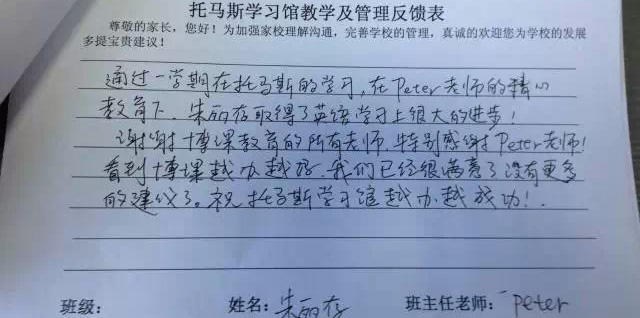 托马斯学习馆教学及管理反馈表
尊敬的家长，您好！为加强家校理解沟通，完善学校的管理，真诚的欢迎您为学校的发展
多提宝贵建议！
通过一学期在托马斯的学习，在Peter老师的精心
教育下，朱丽存取得了英语学习上很大的进步！
谢谢博课教育的所有老师，特别感谢Peter老师！
看到博课越办越好，我们已经很满意了没有更多
的建议了。祝托马斯学习馆越办越成功！
班级： 姓名：朱丽存 班主任老师：Peter